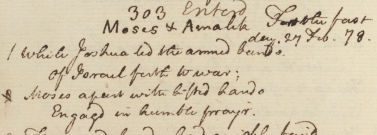 303 Enterd
Moses & Amalek For the fast
day. 27 Feb. 78.
1 While Joshua led the armed bands
Of Israel forth to war;
Moses apart with lifted hands
Engag'd in humble pray'r.